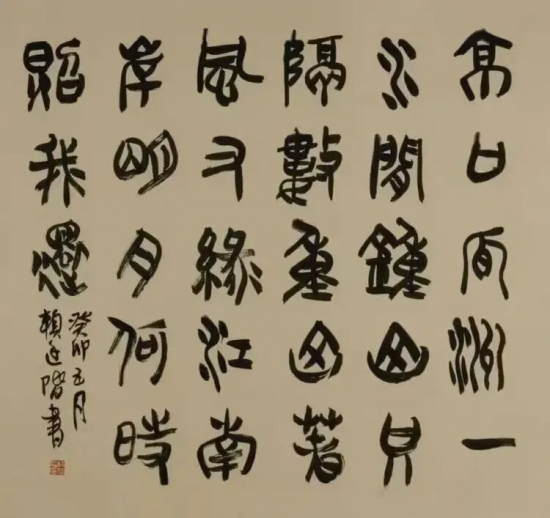 京口瓜洲一
水間鐘山只
隔數重山春
風又綠江南
岸明月何時
照我還
癸卯五月
賴廷階書